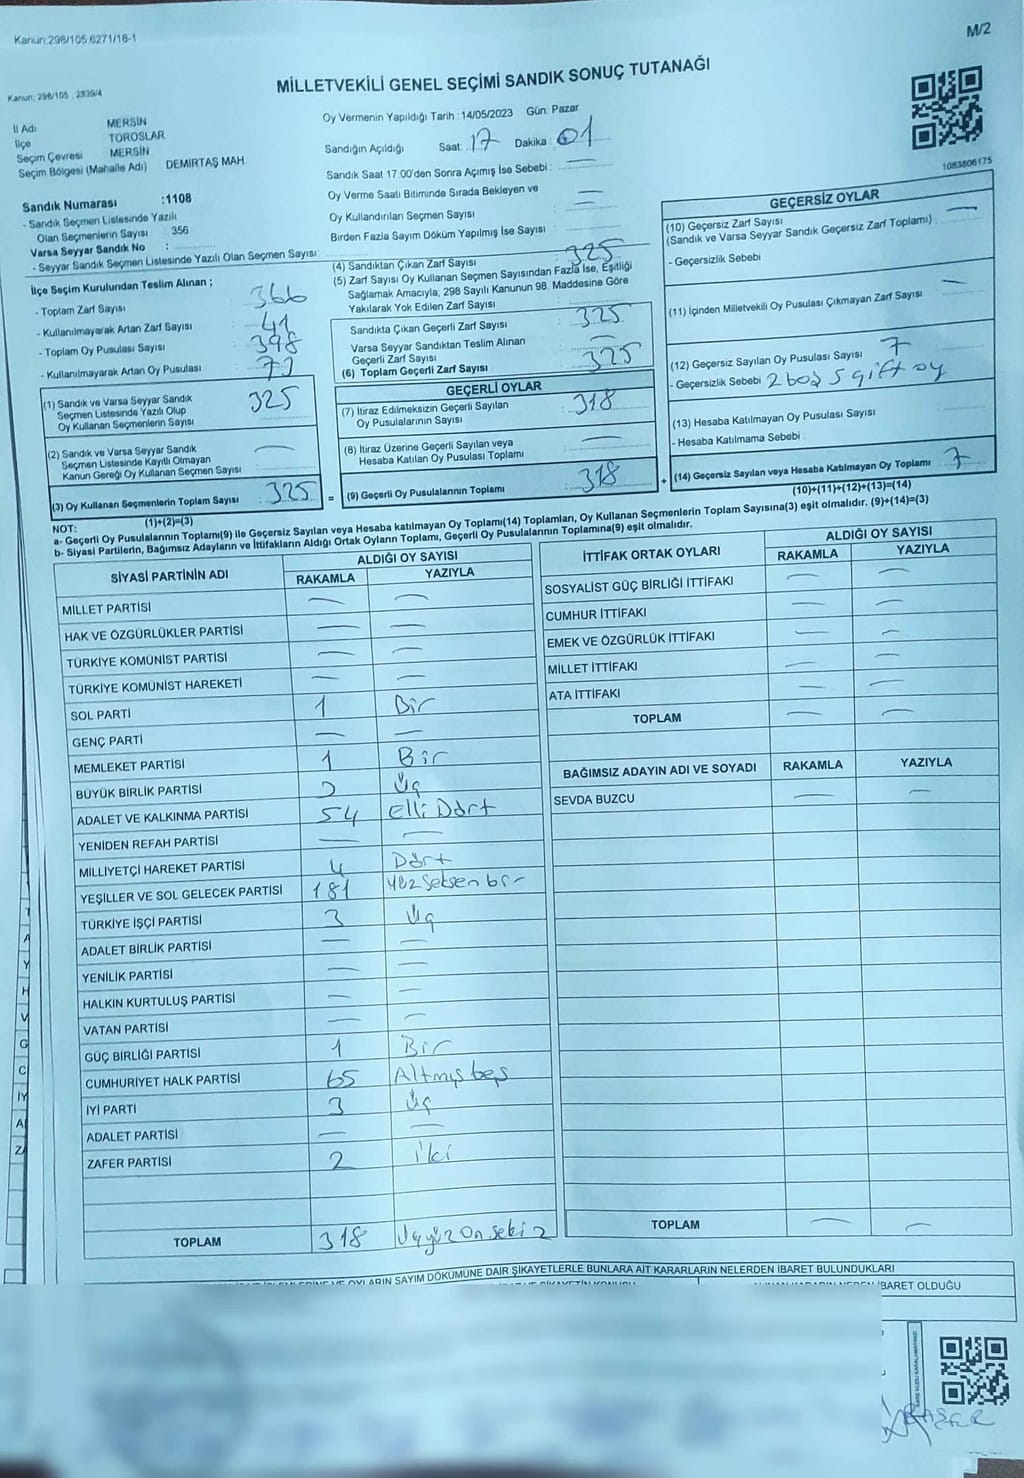 Kanun:298/105.6271/18-1
M/2
MİLLETVEKİLİ GENEL SEÇİMİ SANDIK SONUÇ TUTANAĞI
Kanun: 298/105 , 2839/4
İl Adı MERSİN
İlçe TOROSLAR
Seçim Çevresi MERSİN
Seçim Bölgesi (Mahalle Adı) DEMİRTAŞ MAH.
Sandık Numarası :1108
- Sandık Seçmen Listesinde Yazılı
Olan Seçmenlerin Sayısı : 356
Varsa Seyyar Sandık No :
- Seyyar Sandık Seçmen Listesinde Yazılı Olan Seçmen Sayısı:
Oy Vermenin Yapıldığı Tarih :14/05/2023 Gün: Pazar
Sandığın Açıldığı Saat: 17 Dakika: 01
Sandık Saat 17:00'den Sonra Açımış İse Sebebi : —
Oy Verme Saati Bitiminde Sırada Bekleyen ve
Oy Kullandırılan Seçmen Sayısı —
Birden Fazla Sayım Döküm Yapılmış İse Sayısı :
1083606175
İlçe Seçim Kurulundan Teslim Alınan ;
- Toplam Zarf Sayısı : 366
- Kullanılmayarak Artan Zarf Sayısı : 41
- Toplam Oy Pusulası Sayısı : 398
- Kullanılmayarak Artan Oy Pusulası :
(1) Sandık ve Varsa Seyyar Sandık
Seçmen Listesinde Yazılı Olup
Oy Kullanan Seçmenlerin Sayısı 325
(2) Sandık ve Varsa Seyyar Sandık
Seçmen Listesinde Kayıtlı Olmayan
Kanun Gereği Oy Kullanan Seçmen Sayısı —
(3) Oy Kullanan Seçmenlerin Toplam Sayısı : 325
(1)+(2)=(3)
(4) Sandıktan Çıkan Zarf Sayısı : 325
(5) Zarf Sayısı Oy Kullanan Seçmen Sayısından Fazla İse, Eşitliği
Sağlamak Amacıyla, 298 Sayılı Kanunun 98. Maddesine Göre
Yakılarak Yok Edilen Zarf Sayısı
Sandıkta Çıkan Geçerli Zarf Sayısı : 325
Varsa Seyyar Sandıktan Teslim Alınan
Geçerli Zarf Sayısı —
(6) Toplam Geçerli Zarf Sayısı : 325
GEÇERLİ OYLAR
(7) İtiraz Edilmeksizin Geçerli Sayılan
Oy Pusulalarının Sayısı : 318
(8) İtiraz Üzerine Geçerli Sayılan veya
Hesaba Katılan Oy Pusulası Toplamı —
= (9) Geçerli Oy Pusulalarının Toplamı : 318
GEÇERSİZ OYLAR
(10) Geçersiz Zarf Sayısı
(Sandık ve Varsa Seyyar Sandık Geçersiz Zarf Toplamı) : —
- Geçersizlik Sebebi
(11) İçinden Milletvekili Oy Pusulası Çıkmayan Zarf Sayısı —
(12) Geçersiz Sayılan Oy Pusulası Sayısı : 7
- Geçersizlik Sebebi 2 boş 5 çift oy
(13) Hesaba Katılmayan Oy Pusulası Sayısı :
- Hesaba Katılmama Sebebi :
+ (14) Geçersiz Sayılan veya Hesaba Katılmayan Oy Toplamı : 7
(10)+(11)+(12)+(13)=(14)
NOT:
a- Geçerli Oy Pusulalarının Toplamı(9) ile Geçersiz Sayılan veya Hesaba katılmayan Oy Toplamı(14) Toplamları, Oy Kullanan Seçmenlerin Toplam Sayısına(3) eşit olmalıdır. (9)+(14)=(3)
b- Siyasi Partilerin, Bağımsız Adayların ve İttifakların Aldığı Ortak Oyların Toplamı, Geçerli Oy Pusulalarının Toplamına(9) eşit olmalıdır.
SİYASİ PARTİNİN ADI ALDIĞI OY SAYISI
RAKAMLA YAZIYLA
MİLLET PARTİSİ — —
HAK VE ÖZGÜRLÜKLER PARTİSİ — —
TÜRKİYE KOMÜNİST PARTİSİ — —
TÜRKİYE KOMÜNİST HAREKETİ — —
SOL PARTİ 1 Bir
GENÇ PARTİ — —
MEMLEKET PARTİSİ 1 Bir
BÜYÜK BİRLİK PARTİSİ 3 Üç
ADALET VE KALKINMA PARTİSİ 54 Elli Dört
YENİDEN REFAH PARTİSİ — —
MİLLİYETÇİ HAREKET PARTİSİ 4 Dört
YEŞİLLER VE SOL GELECEK PARTİSİ 181 Yüz seksen bir
TÜRKİYE İŞÇİ PARTİSİ 3 Üç
ADALET BİRLİK PARTİSİ — —
YENİLİK PARTİSİ — —
HALKIN KURTULUŞ PARTİSİ — —
VATAN PARTİSİ — —
GÜÇ BİRLİĞİ PARTİSİ 1 Bir
CUMHURİYET HALK PARTİSİ 65 Altmış beş
İYİ PARTİ 3 Üç
ADALET PARTİSİ — —
ZAFER PARTİSİ 2 İki
TOPLAM 318 Üçyüz On sekiz
İTTİFAK ORTAK OYLARI ALDIĞI OY SAYISI
RAKAMLA YAZIYLA
SOSYALİST GÜÇ BİRLİĞİ İTTİFAKI — —
CUMHUR İTTİFAKI — —
EMEK VE ÖZGÜRLÜK İTTİFAKI — —
MİLLET İTTİFAKI — —
ATA İTTİFAKI — —
TOPLAM — —
BAĞIMSIZ ADAYIN ADI VE SOYADI RAKAMLA YAZIYLA
SEVDA BUZCU — —
TOPLAM — —
OYLARIN SAYIM DÖKÜMÜNE DAİR ŞİKAYETLERLE BUNLARA AİT KARARLARIN NELERDEN İBARET BULUNDUKLARI
İBARET OLDUĞU